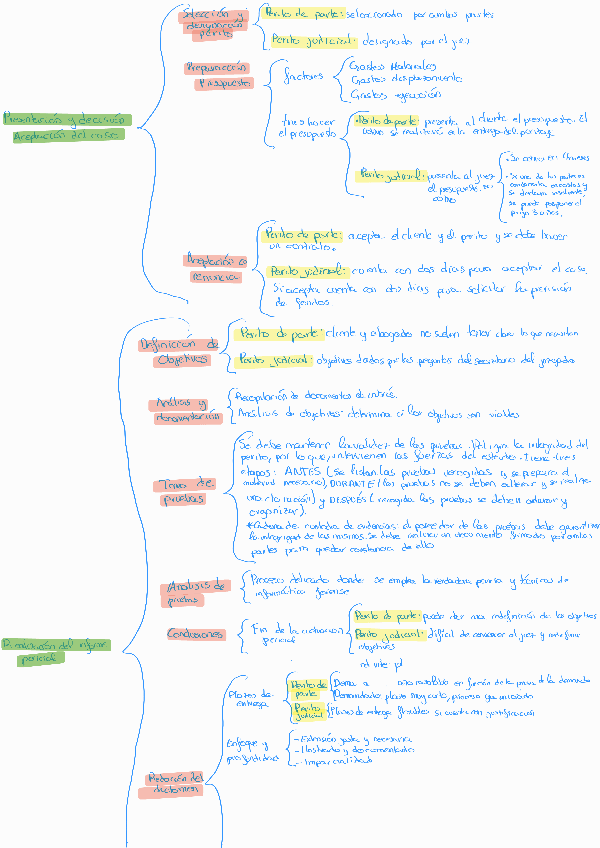 Selección y
designación
perito
Perito de parte: seleccionado por ambas partes
Perito judicial: designado por el juez
Preparación
Presupuesto
factores
Gastos Materiales
Gastos desplazamiento
Gastos ejecución
hacer
el presupuesto
Perito de parte: presenta al cliente el presupuesto. El
cobro se realizará a la entrega del peritaje
Perito judicial: presenta al juez
el presupuesto.
como
se puede posponer el
pago
Presentación y decisión
Aceptación del caso
Aceptación o
renuncia
Perito de parte: aceptan el cliente y el perito y se debe hacer
un contrato.
Perito judicial: cuenta con dos días para aceptar el caso.
Si acepta cuenta con otro días para solicitar la provisión
de fondos
Definición de
Objetivos
Perito de parte: cliente y abogado no suelen tener claro lo que necesitan
Perito judicial: objetivos dados por las preguntas del secretario del juzgado
Análisis y
documentación
Recopilación de documentos de interés.
Análisis de objetivos: determina si los objetivos son viables
Toma de
pruebas
Se debe mantener la validez de las pruebas. la integridad del
perito, por lo que, intervienen las fuerzas del estado. Tiene tres
etapas: ANTES (Se listan las pruebas recogidas y se prepara el
material necesario), DURANTE (las pruebas no se deben alterar y se realiza
una clonación) y DESPUÉS (recogida las pruebas se deben etiquetar y
organizar).
*Cadena de custodia de evidencias: el poseedor de las pruebas debe garantizar
la integridad de las mismas. Se debe realizar un documento firmado por ambas
partes para quedar constancia de ello
Análisis de
pruebas
Proceso delicado donde se emplea la verdadera pericia y técnicas de
informática forense
Conclusiones
Fin de la actuación
pericial
Perito de parte: puede dar una redefinición de los objetivos
Perito judicial: difícil de convencer al juez y redefinir
objetivos
del informe
pericial
Redacción del
dictamen
Plazos de
entrega
Perito de
parte
en función de la prisa de la demanda
Demandado: plazo muy corto, proceso ya iniciado
Perito
judicial
Plazos de entrega flexibles si cuenta con justificación
Enfoque y
profundidad
- Extensión justa y necesaria
- Ilustrado y documentado
- Imparcialidad